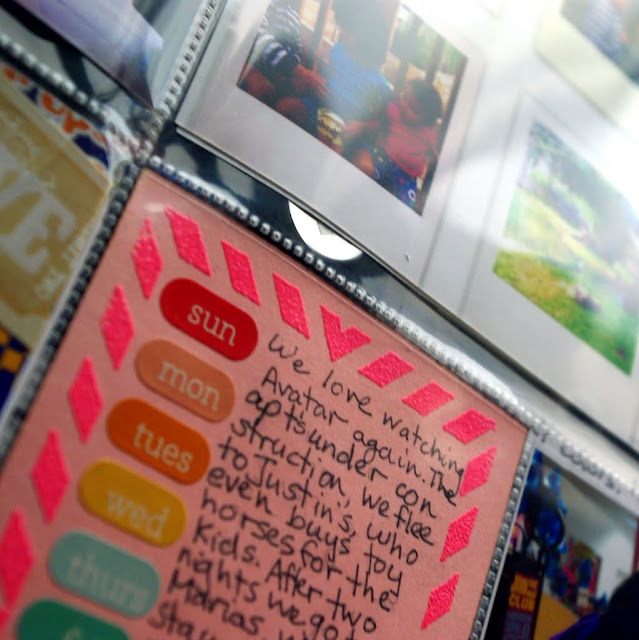 sun
mon
tues
wed
thurs
We love watching
Avatar again. The
apts under con
struction, we flee
to Justin's, who
even buys toy
horses for the
kids. After two
nights we got
Marias,